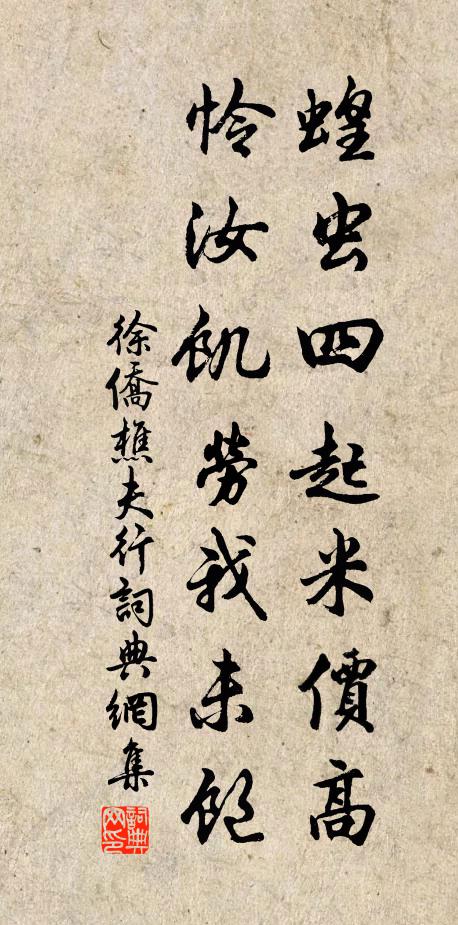 蝗虫四起米價高
怜汝飢勞我未飽
徐僑樵夫行詞典網集
詞典網印